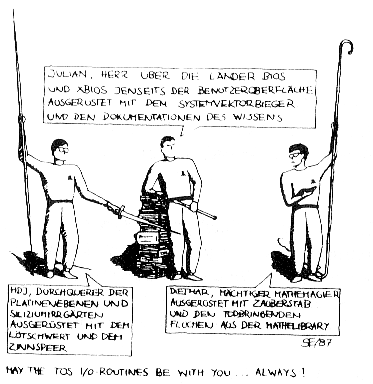 JULIAN, HERR ÜBER DIE LÄNDER BIOS
UND XBIOS JENSEITS DER BENUTZEROBERFLÄCHE
AUSGERÜSTET MIT DEM SYSTEMVEKTORBIEGER
UND DEN DOKUMENTATIONEN DES WISSENS
HDJ, DURCHQUERER DER
PLATINENEBENEN UND
SILIZIUMIRRGÄRTEN
AUSGERÜSTET MIT DEM
LÖTSCHWERT UND DEM
ZINNSPEER
DIETMAR, MÄCHTIGER MATHEMAGIER
AUSGERÜSTET MIT ZAUBERSTAB
UND DEN TODBRINGENDEN
FLÜCHEN AUS DER MATHELIBRARY
SF/87
MAY THE TOS I/O-ROUTINES BE WITH YOU ... ALWAYS!